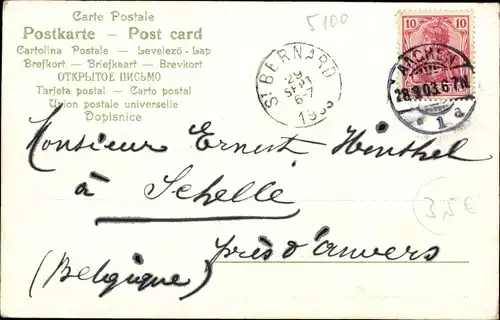 Carte Postale
Postkarte – Post card
Cartolina Postale – Levelező-Lap
Brefkort – Briefkaart – Brevkort
ОТКРЫТОЕ ПИСЬМО
Tarjeta postal – Carto postal
Union postale universelle
Dopisnice
5100
10 10
AACHEN
28.9.03.6-7N.
* 1 d
ST BERNARD
29
SEPT
6-7
1903
Monsieur Ernest Henthel
à Schelle
près d'anvers
(Belgique)
3,5€